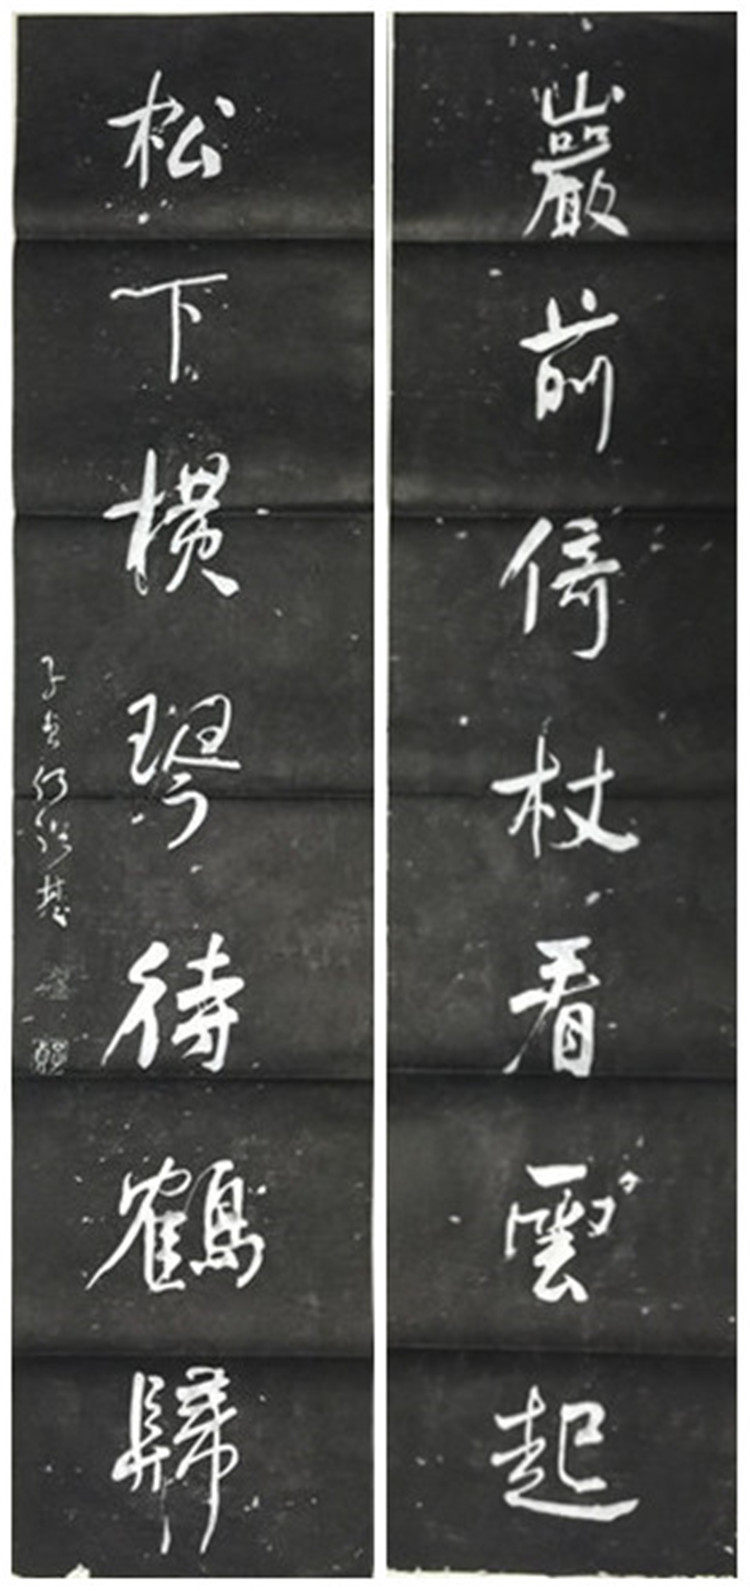 巖前倚杖看雲起
松下橫琴待鶴歸
子貞何紹基